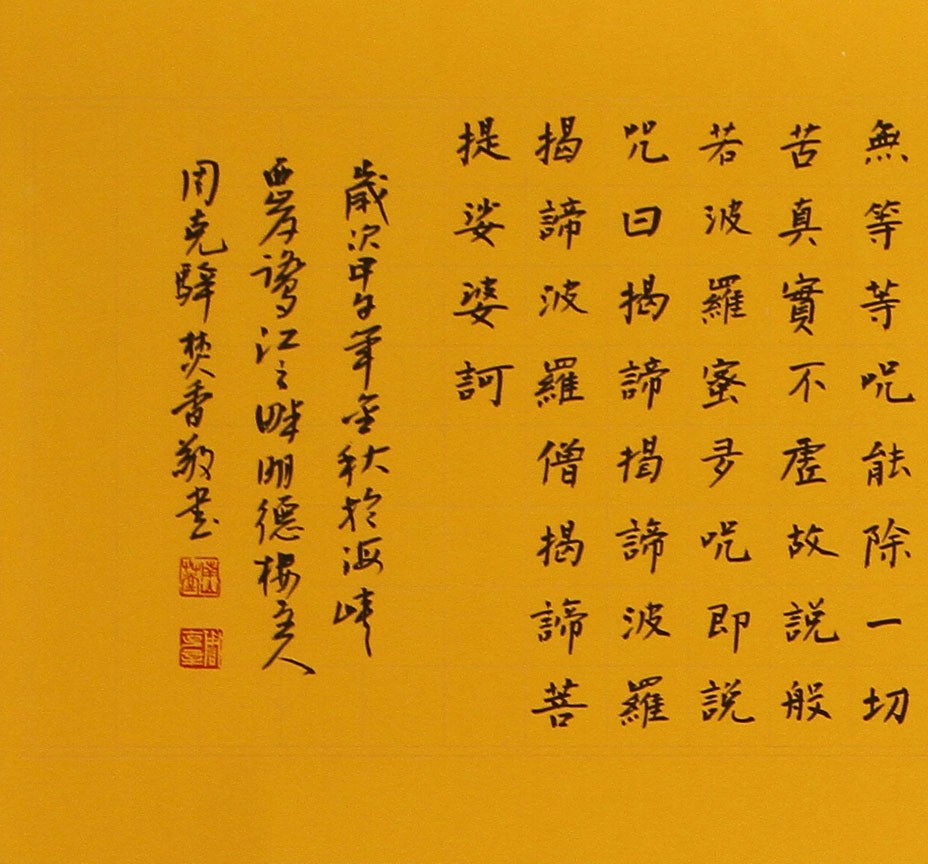 無等等呪能除一切
苦真實不虛故説般
若波羅蜜多呪即説
呪曰揭諦揭諦波羅
揭諦波羅僧揭諦菩
提娑婆訶
歲次甲午年金秋於海峡
西岸鹭江之畔明德楼主人
周克驛焚香敬書